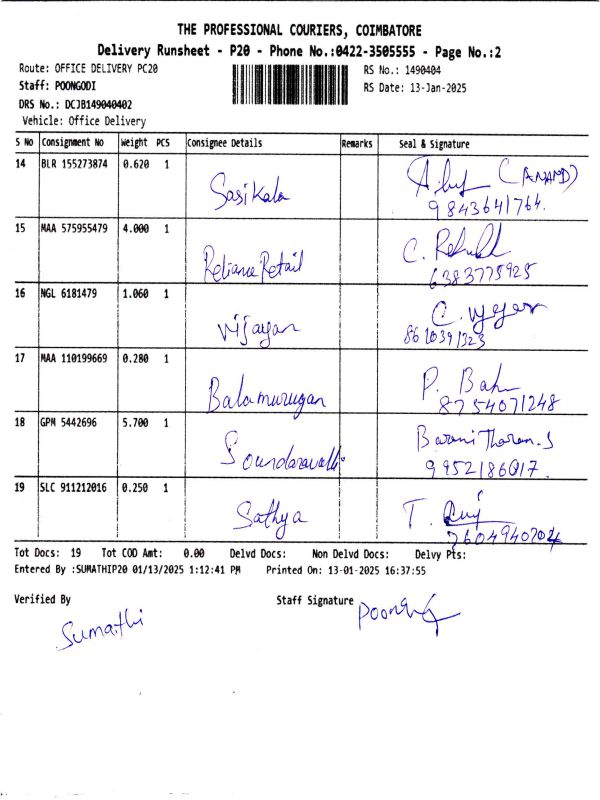 THE PROFESSIONAL COURIERS, COIMBATORE
Delivery Runsheet - P20 - Phone No.:0422-3505555 - Page No.:2
Route: OFFICE DELIVERY PC20 RS No.: 1490404
Staff: POONGODI RS Date: 13-Jan-2025
DRS No.: DCJB149040402
Vehicle: Office Delivery
S No Consignment No Weight PCS Consignee Details Remarks Seal & Signature
14 BLR 155273874 0.620 1 Sasikala (ANAND)
9843641764.
15 MAA 575955479 4.000 1 Reliance Retail C.
6383775925
16 NGL 6181479 1.060 1 Vijayan C.
8610391323
17 MAA 110199669 0.280 1 Balamurugan P.
8754071248
18 GPM 5442696 5.700 1 Soundaravalli Barani Tharan.S
9952186017.
19 SLC 911212016 0.250 1 Sathya T.
7604940704
Tot Docs: 19 Tot COD Amt: 0.00 Delvd Docs: Non Delvd Docs: Delvy Pts:
Entered By :SUMATHIP20 01/13/2025 1:12:41 PM Printed On: 13-01-2025 16:37:55
Verified By Staff Signature
Sumathi